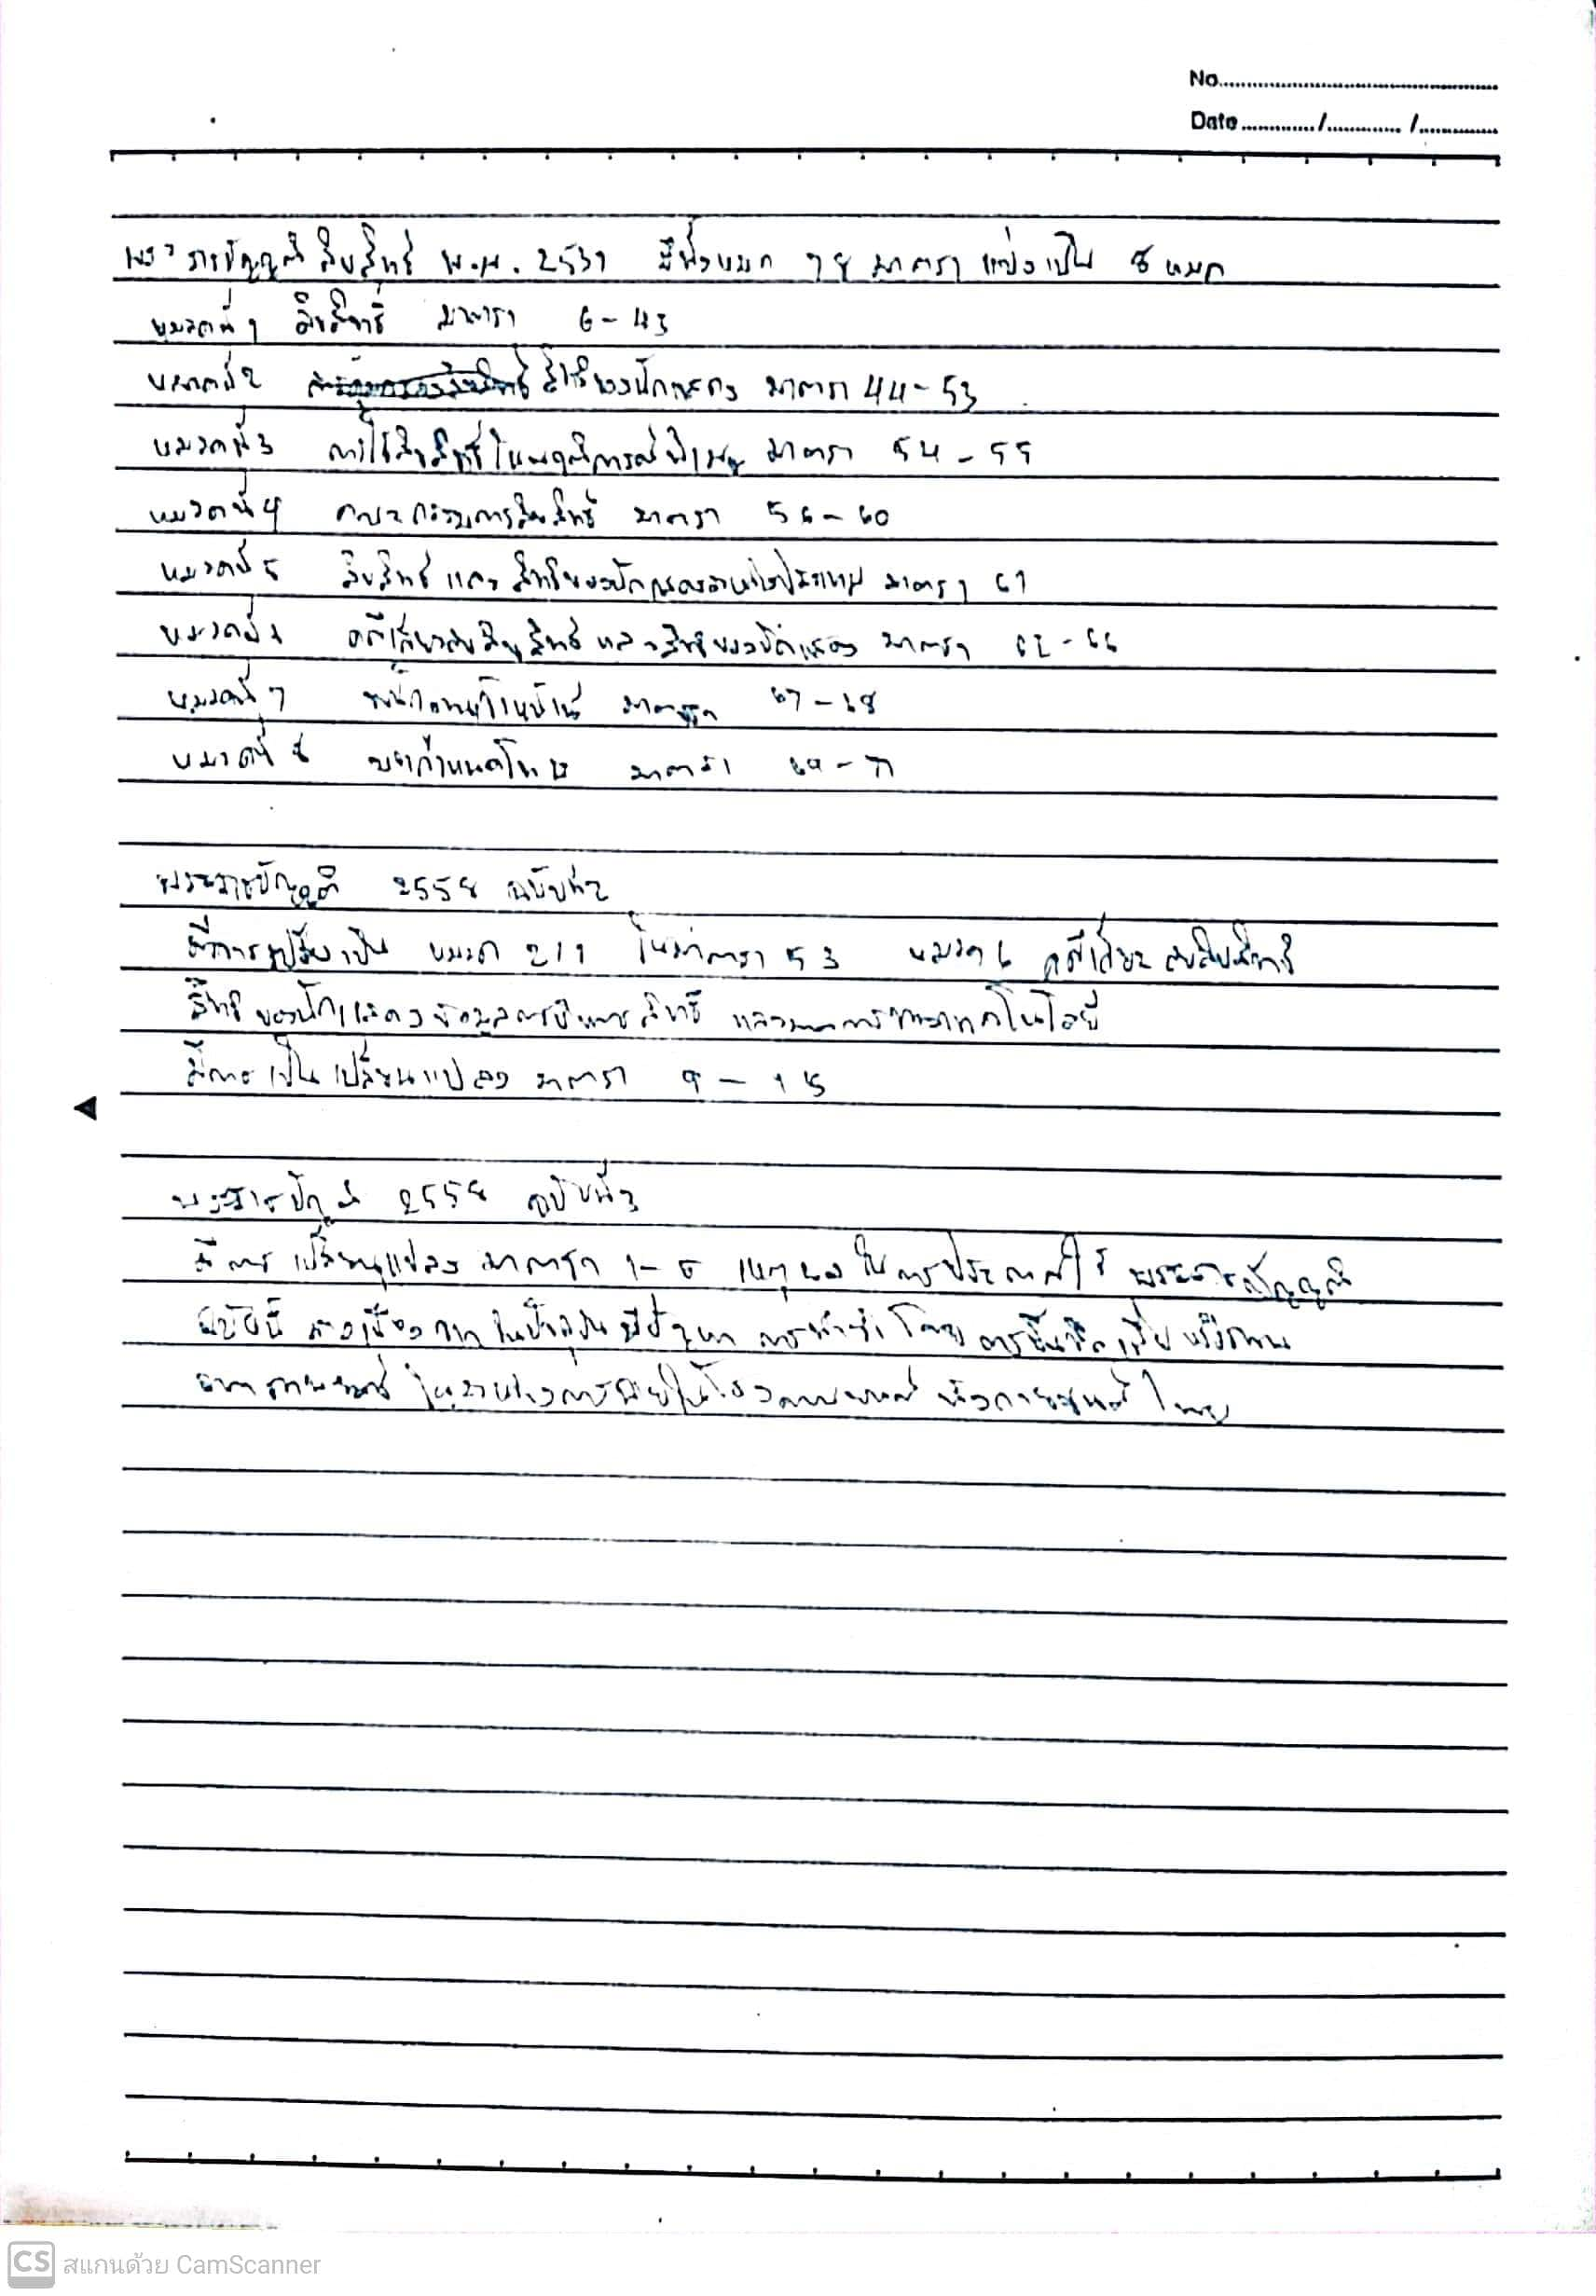 No.
Date / /
พระราชบัญญัติ ลิขสิทธิ์ พ.ศ. 2537 มีทั้งหมด 78 มาตรา แบ่งเป็น 8 หมวด
หมวดที่ 1 ลิขสิทธิ์ มาตรา 6-43
หมวดที่ 2 สิทธิของนักแสดง มาตรา 44-53
หมวดที่ 3 การใช้ลิขสิทธิ์ในพฤติการณ์พิเศษ มาตรา 54-55
หมวดที่ 4 คณะกรรมการลิขสิทธิ์ มาตรา 56-60
หมวดที่ 5 ลิขสิทธิ์ และ สิทธิของนักแสดงระหว่างประเทศ มาตรา 61
หมวดที่ 6 คดีเกี่ยวกับลิขสิทธิ์ และสิทธิของนักแสดง มาตรา 62-66
หมวดที่ 7 พนักงานเจ้าหน้าที่ มาตรา 67-68
หมวดที่ 8 บทกำหนดโทษ มาตรา 69-77
พระราชบัญญัติ 2558 ฉบับที่ 2
มีการ เป็น หมวด 2/1 ในมาตรา 53 หมวด 6 คดีเกี่ยวกับลิขสิทธิ์
สิทธิของนักแสดง ข้อมูลการบริหารสิทธิ และมาตรการทางเทคโนโลยี
มีการเป็นเปลี่ยนแปลง มาตรา 9-15
พระราชบัญญัติ 2558 ฉบับที่ 3
มีการ เปลี่ยนแปลง มาตรา 1-5 เหตุผล ในการประกาศใช้ พระราชบัญญัติ
ฉบับนี้ คือเนื่องจาก ในปัจจุบัน มีปัญหา การทำซ้ำ โดย การบันทึกเสียงหรือภาพ
จากภาพยนตร์ ในระหว่างการฉายในโรงภาพยนตร์ ทั้งภาพยนตร์ ไทย
CS สแกนด้วย CamScanner